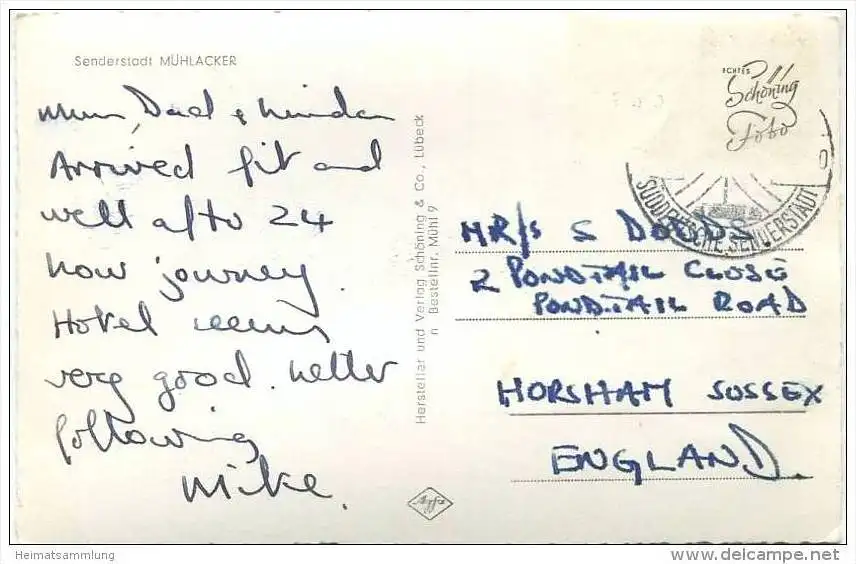 Senderstadt MÜHLACKER
Mum, Dad & Linda
Arrived fit and
well after 24
hour journey.
Hotel seems
very good. Letter
following
Mike.
Hersteller und Verlag Schöning & Co., Lübeck
Bestellnr. Mühl 9
Agfa
ECHTES
Schöning
Foto
SÜDDEUTSCHE SENDERSTADT
MR/S S DODDS
2 PONDTAIL CLOSE
PONDTAIL ROAD
HORSHAM SUSSEX
ENGLAND.
Heimatsammlung
http://www.delcampe.net